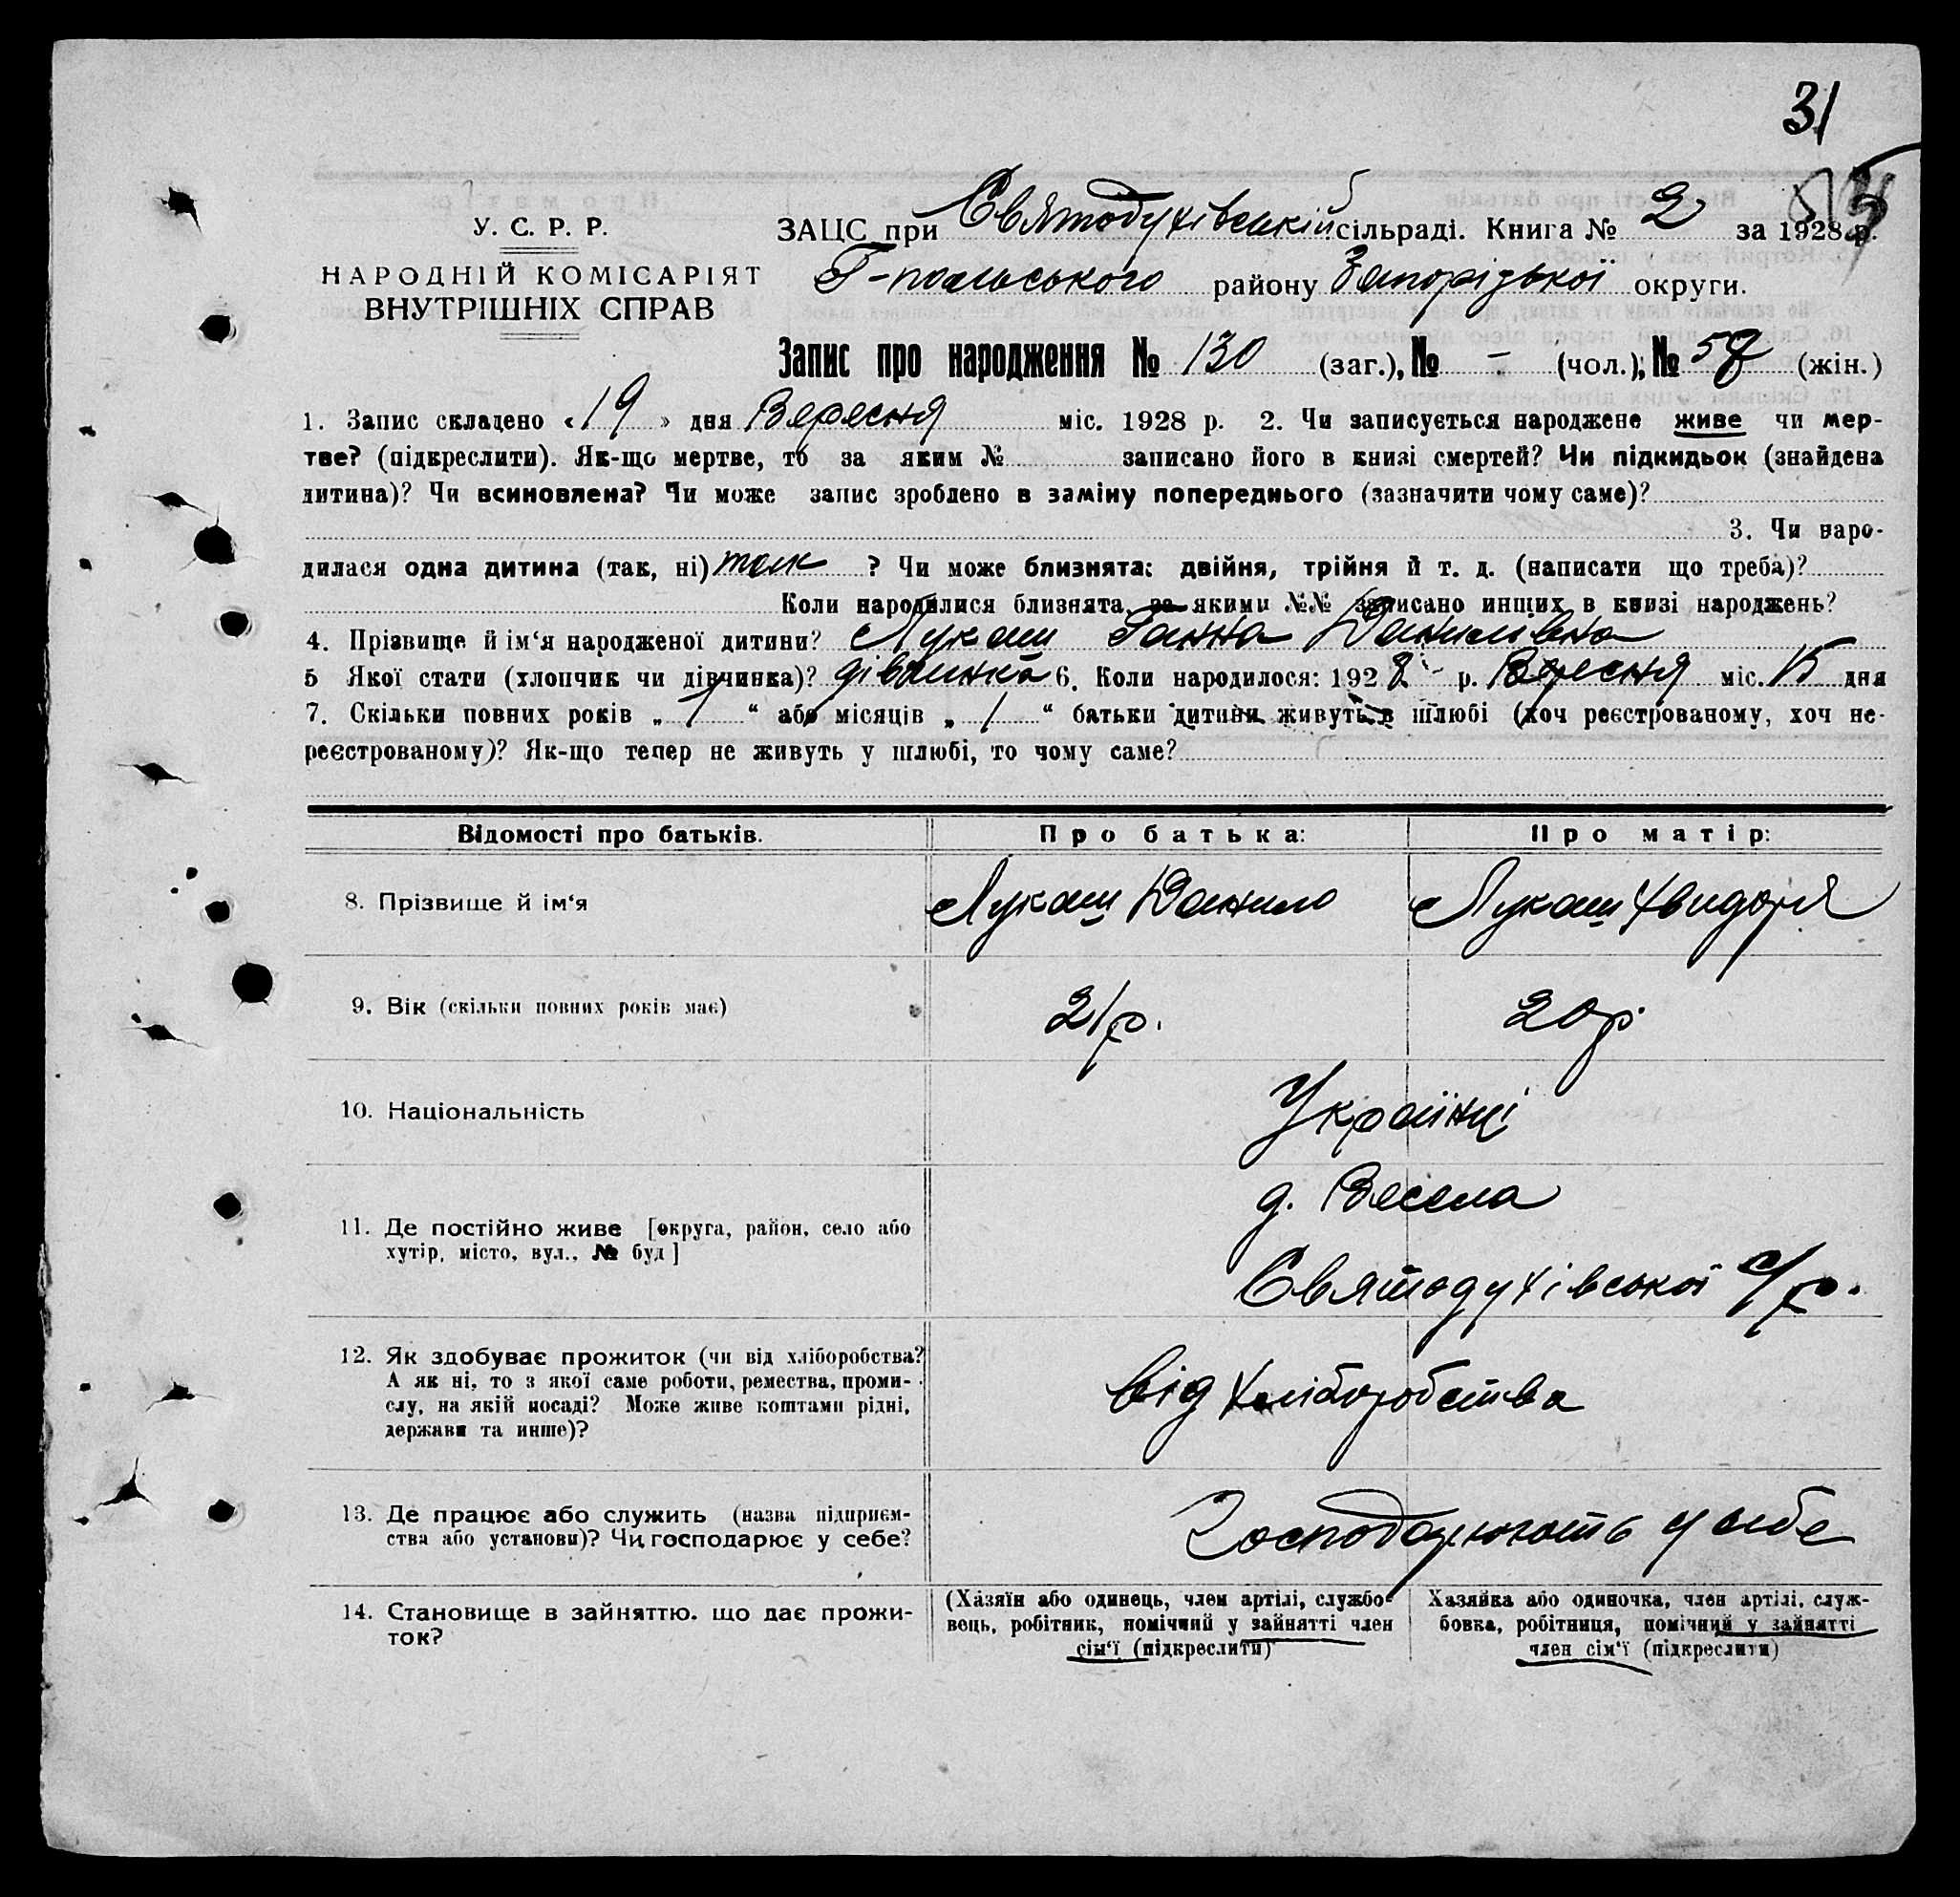 31
У. С. Р. Р.
НАРОДНІЙ КОМІСАРІЯТ
ВНУТРІШНІХ СПРАВ
ЗАЦС при Святодухівській сільраді. Книга № 2 за 1928 р.
Г-польського району Запорізької округи.
Запис про народження № 130 (заг.), № - (чол.); № 58 (жін.)
1. Запис складено «19» дня Вересня міс. 1928 р. 2. Чи записується народжене живе чи мер-
тве? (підкреслити). Як-що мертве, то за яким № записано його в книзі смертей? Чи підкидьок (знайдена
дитина)? Чи всиновлена? Чи може запис зроблено в заміну попереднього (зазначити чому саме)?
3. Чи наро-
дилася одна дитина (так, ні) так ? Чи може близнята: двійня, трійня й т. д. (написати що треба)?
Коли народилися близнята, за якими №№ записано инших в книзі народжень?
4. Прізвище й ім‘я народженої дитини? Лукаш Ганна Данилівна
5 Якої стати (хлопчик чи дівчинка)? дівчинка 6. Коли народилося: 1928 р. Вересня міс. 15 дня
7. Скільки повних років „ 1 “ або місяців „ / “ батьки дитини живуть в шлюбі (хоч реєстрованому, хоч не-
реєстрованому)? Як-що тепер не живуть у шлюбі, то чому саме?
Відомості про батьків. Про батька: Про матір:
8. Прізвище й ім‘я Лукаш Данило Лукаш Хвидоря
9. Вік (скільки повних років має) 21 р. 20 р.
10. Національність Українці
11. Де постійно живе [округа, район, село або
хутір, місто, вул., № буд]
д. Весела
Святодухівської с/р.
12. Як здобуває прожиток (чи від хліборобства?
А як ні, то з якої саме роботи, ремества, проми-
слу, на якій посаді? Може живе коштами рідні,
держави та инше)?
від хліборобства
13. Де працює або служить (назва підприєм-
ства або установи)? Чи господарює у себе?
Господарюють у себе
14. Становище в зайняттю, що дає прожи-
ток?
(Хазяїн або одинець, член артілі, службо-
вець, робітник, помічний у зайнятті член
сім‘ї (підкреслити)
Хазяйка або одиночка, член артілі, служ-
бовка, робітниця, помічний у зайнятті
член сім‘ї (підкреслити)